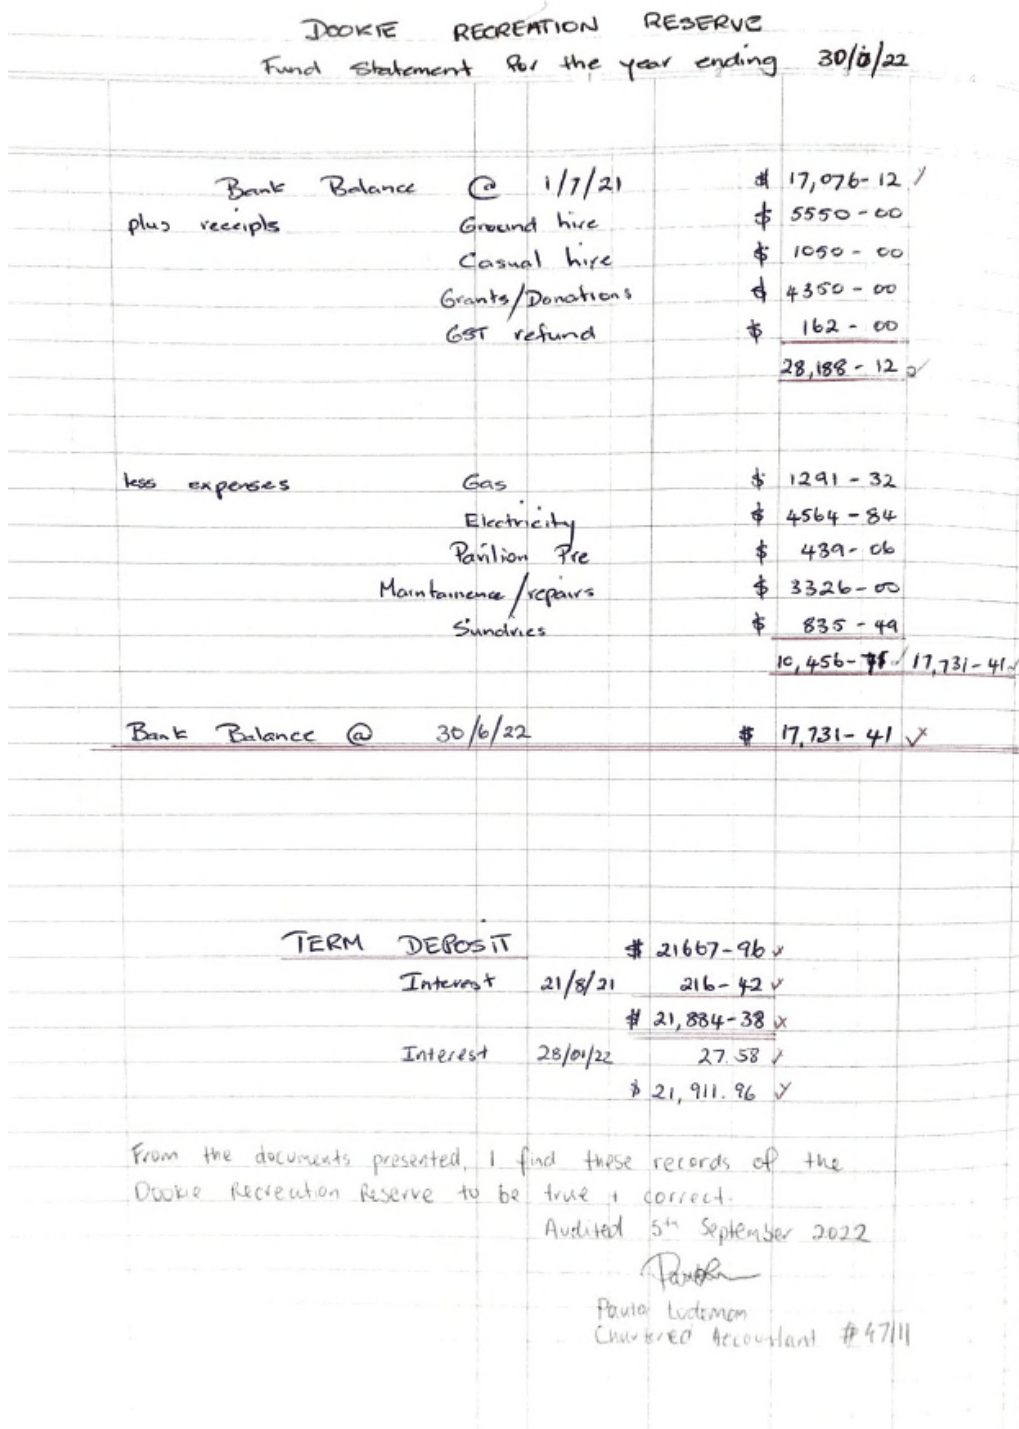 DOOKIE RECREATION RESERVE
Fund Statement for the year ending 30/6/22
Bank Balance @ 1/7/21 $ 17,076-12
plus receipts Ground hire $ 5550-00
Casual hire $ 1050-00
Grants/Donations $ 4350-00
GST refund $ 162-00
28,188-12
less expenses Gas $ 1291-32
Electricity $ 4564-84
Pavilion Pre $ 439-06
Maintainence/repairs $ 3326-00
Sundries $ 835-49
10,456-71 17,731-41
Bank Balance @ 30/6/22 $ 17,731-41
TERM DEPOSIT $ 21667-96
Interest 21/8/21 216-42
$ 21,884-38
Interest 28/01/22 27.58
$ 21,911.96
From the documents presented, I find these records of the
Dookie Recreation Reserve to be true + correct.
Audited 5th September 2022
Paula Ludeman
Chartered Accountant # 47111